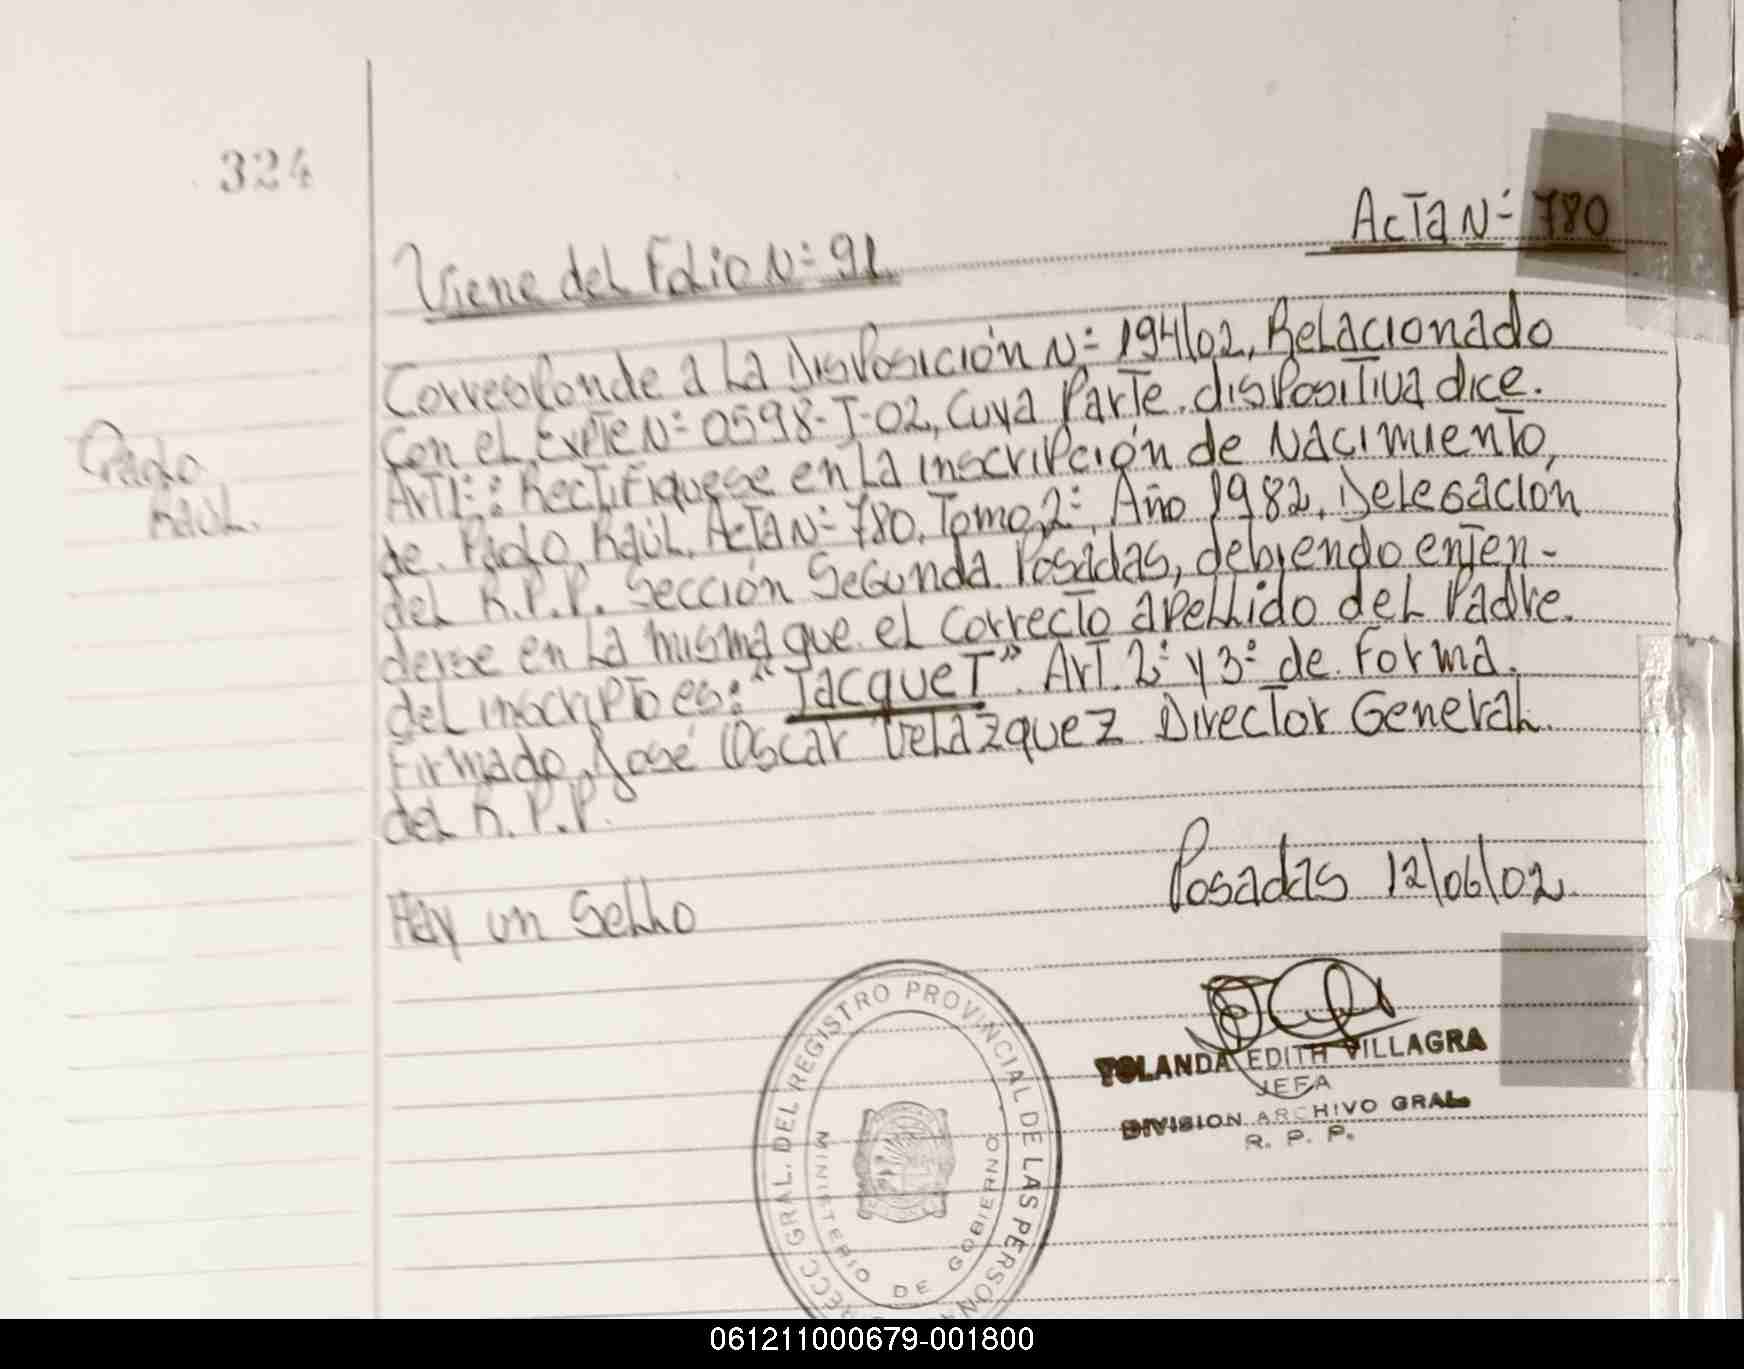 324
Acta N=780
Viene del Folio N=91
Corresponde a La Disposición N=194/02, Relacionado
Con el Expte N=0598-J-02, Cuya Parte. dispositiva dice.
Art1=: Rectifiquese en La inscripción de Nacimiento,
de. Paolo, Raúl. Acta N=780. Tomo 2=, Año 1982. Delegacion
del R.P.P. Sección Segunda. Posadas, debiendo enten-
derse en La misma que. el correcto apellido del Padre.
del inscripto es: "Jacquet". Art. 2° y 3° de. Forma.
Firmado, José Oscar Velázquez Director General.
del R.P.P.
Raúl.
Hay un Sello
Posadas 12/06/02
RECC GRAL. DEL REGISTRO PROVINCIAL DE LAS PERSONA
MINISTERIO DE GOBIERNO
YOLANDA EDITH VILLAGRA
JEFA
DIVISION ARCHIVO GRAL
R. P. P.
061211000679-001800